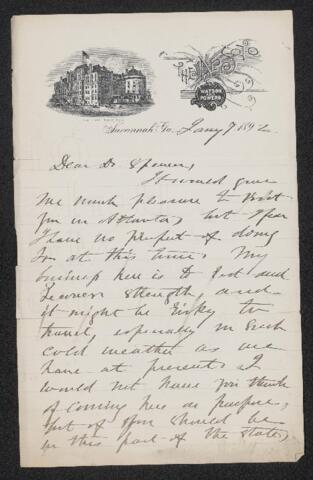 THE DE SOTO
WATSON & POWERS
Savannah, Ga. Jany 7 1892
Dear Dr Spencer,
It would give
me much pleasure to visit
you in Atlanta, but I fear
I have no prospect of doing
so at this time. My
business here is to rest and
recover strength, and
it might be risky to
travel, especially in such
cold weather as we
have at present. I
would not have you think
of coming here on purpose,
but if you should be
in this part of the state,